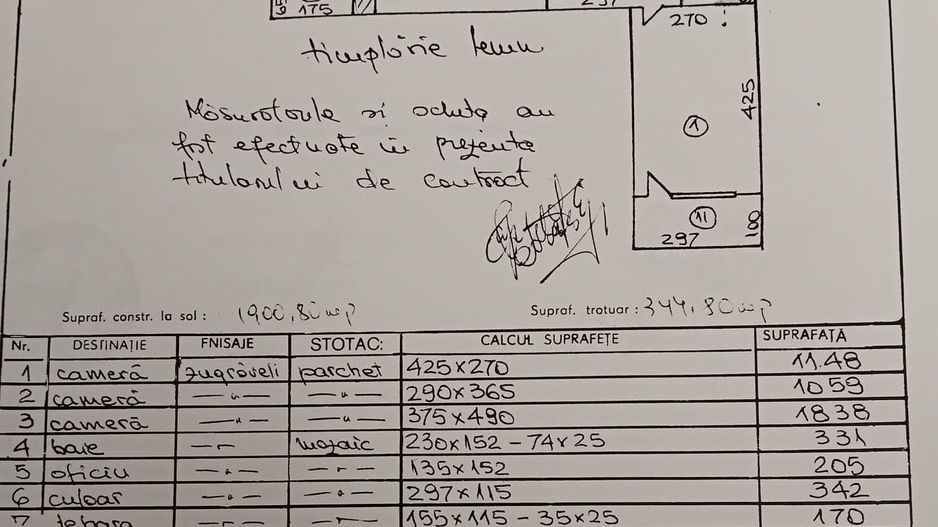 175
297
270
tîmplărie lemn
425
Măsurătorile și schița au
fost efectuate în prezența
titularului de contract
1
11
100
297
Supraf. constr. la sol : 1900,80 mp Supraf. trotuar : 344,80 mp
Nr. DESTINAȚIE FNISAJE STOTAC: CALCUL SUPRAFEȚE SUPRAFAȚĂ
1 cameră zugrăveli parchet 425x270 11.48
2 cameră —"— —"— 290x365 1059
3 cameră —"— —"— 375x490 1838
4 baie —"— mozaic 230x152 - 74x25 331
5 oficiu —"— —"— 135x152 205
6 culoar —"— —"— 297x115 342
7 debara —"— —"— 155x115 - 35x25 170